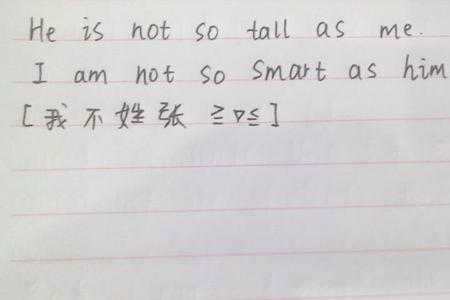 He is not so tall as me.
I am not so smart as him
[我不姓张 ≧▽≦]